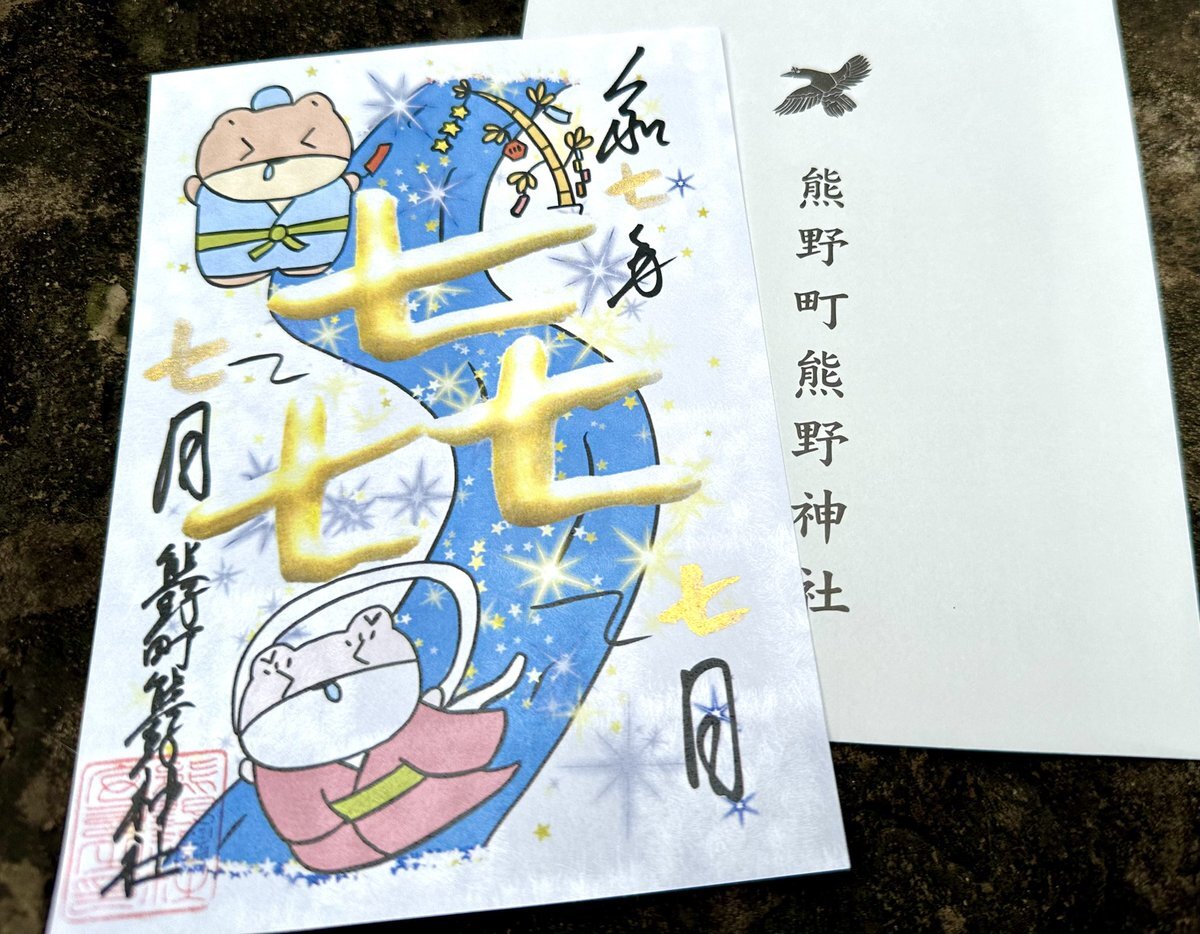 令和七年
七月
七七七
七月
熊野町熊野神社
熊野町熊野神社